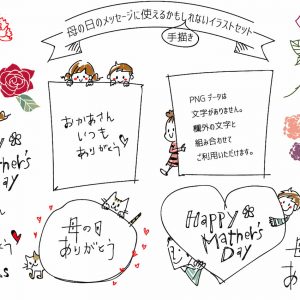 母の日のメッセージに使えるかもしれないイラストセット
手描き
おかあさん
いつも
ありがとう
PNGデータは
文字がありません。
欄外の文字と
組み合わせて
ご利用いただけます。
ppy
Mother's
Day
母の日
ありがとう
Happy
Mother's
Day
H
M
母
あり